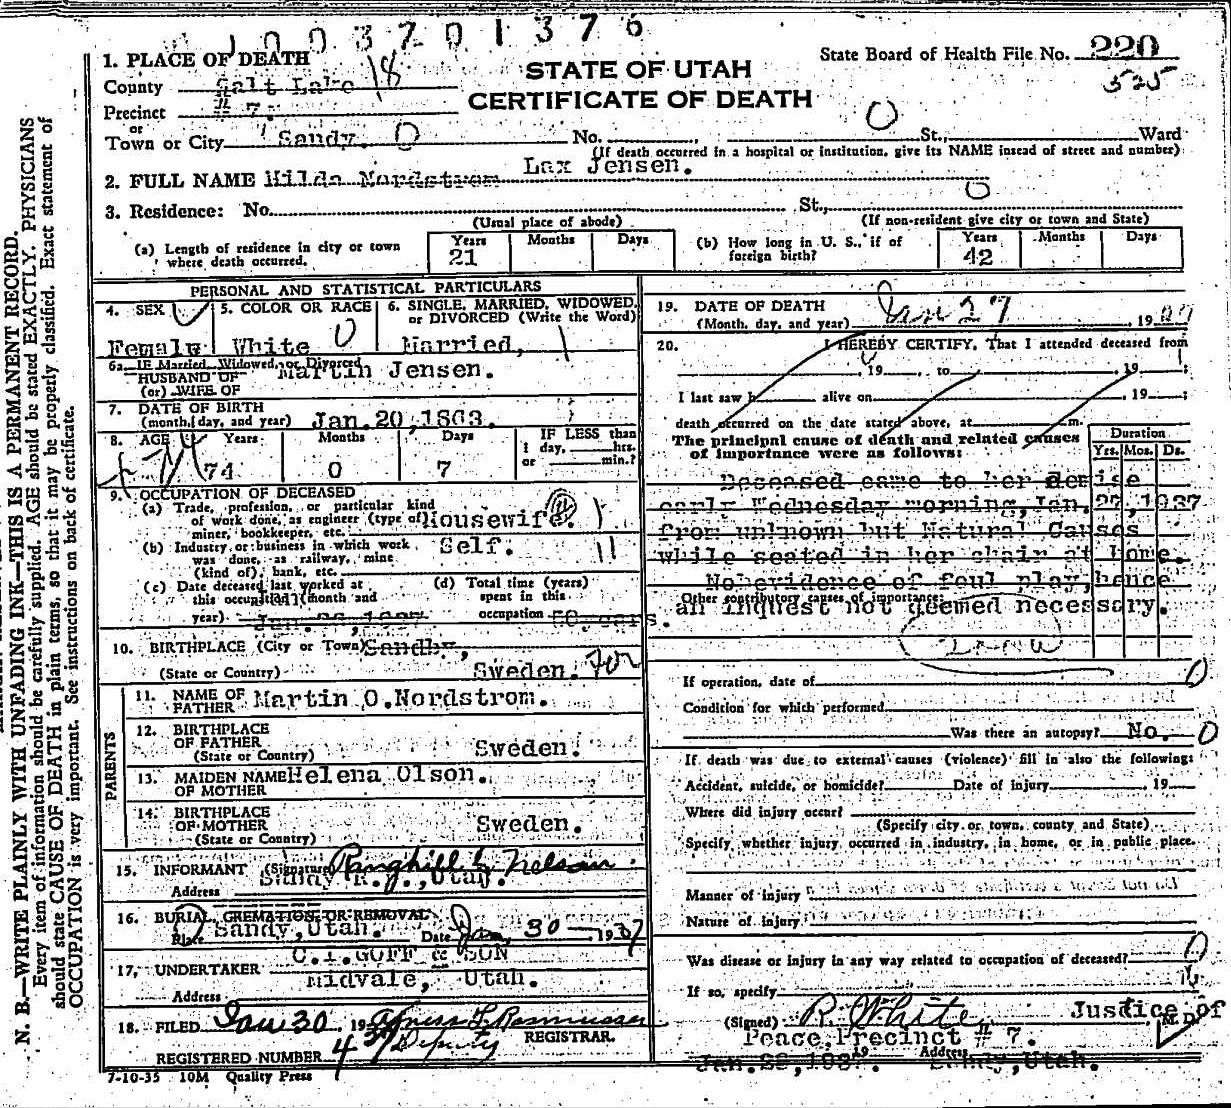 1003701376
STATE OF UTAH
CERTIFICATE OF DEATH
State Board of Health File No. 220
525
1. PLACE OF DEATH
County Salt Lake 18
Precinct # 7.
or
Town or City Sandy. 0 No. 0 St., Ward
(If death occurred in a hospital or institution, give its NAME insead of street and number)
2. FULL NAME Hilda Nordstrom Lax Jensen.
3. Residence: No. St., 0
(Usual place of abode) (If non-resident give city or town and State)
(a) Length of residence in city or town where death occurred. Years 21 Months Days
(b) How long in U. S., if of foreign birth? Years 42 Months Days
PERSONAL AND STATISTICAL PARTICULARS
4. SEX Female
5. COLOR OR RACE White 0
6. SINGLE, MARRIED, WIDOWED, or DIVORCED (Write the Word) Married, 1
6a. IF Married, Widowed, or Divorced
HUSBAND OF
(or) WIFE OF Martin Jensen.
7. DATE OF BIRTH
(month, day, and year) Jan.20,1863.
8. AGE Years 74 Months 0 Days 7
IF LESS than
1 day, hrs.
or min.?
9. OCCUPATION OF DECEASED
(a) Trade, profession, or particular kind
of work done, as engineer (type of) Housewife.
miner, bookkeeper, etc.
(b) Industry or business in which work Self. 11
was done, as railway, mine
(kind of), bank, etc.
(c) Date deceased last worked at
this occupation (month and
year) Jan.26,1937
(d) Total time (years)
spent in this
occupation 50 years.
10. BIRTHPLACE (City or Town) Sandby,
(State or Country) Sweden. 702
PARENTS
11. NAME OF
FATHER Martin O.Nordstrom.
12. BIRTHPLACE
OF FATHER
(State or Country) Sweden.
13. MAIDEN NAME
OF MOTHER Helena Olson.
14. BIRTHPLACE
OF MOTHER
(State or Country) Sweden.
15. INFORMANT (Signature) Ranghill L Nelson
Address Sandy R.J., Utah.
16. BURIAL, CREMATION, OR REMOVAL
Place Sandy, Utah. Date Jan. 30 1937
17. UNDERTAKER C.I.GOFF & SON
Address Midvale, Utah.
18. FILED Jan 30 1937 Agness L. Rasmussen
Deputy REGISTRAR.
REGISTERED NUMBER 4
7-10-35 10M Quality Press
19. DATE OF DEATH
(Month, day, and year) Jan 27, 1937
20. I HEREBY CERTIFY, That I attended deceased from
, 19 , to , 19 ;
I last saw h alive on , 19 ;
death occurred on the date stated above, at m.
The principal cause of death and related causes
of importance were as follows:
Duration
Yrs. Mos. Ds.
Deceased came to her demise
early Wednesday morning, Jan. 27, 1937
from unknown but Natural Causes
while seated in her chair at home.
No evidence of foul play, hence
Other contributory causes of importance:
an inquest not deemed necessary.
If operation, date of 0
Condition for which performed
Was there an autopsy? No. 0
If death was due to external causes (violence) fill in also the following:
Accident, suicide, or homicide? Date of injury 19
Where did injury occur?
(Specify city or town, county and State)
Specify whether injury occurred in industry, in home, or in public place.
Manner of injury
Nature of injury
Was disease or injury in any way related to occupation of deceased? 0
If so, specify
(Signed) R. White Justice of M.D.
Peace, Precinct # 7.
Jan.28,1937. 19 Address Sandy, Utah.
N. B.—WRITE PLAINLY WITH UNFADING INK—THIS IS A PERMANENT RECORD.
Every item of information should be carefully supplied. AGE should be stated EXACTLY. PHYSICIANS
should state CAUSE OF DEATH in plain terms, so that it may be properly classified. Exact statement of
OCCUPATION is very important. See instructions on back of certificate.